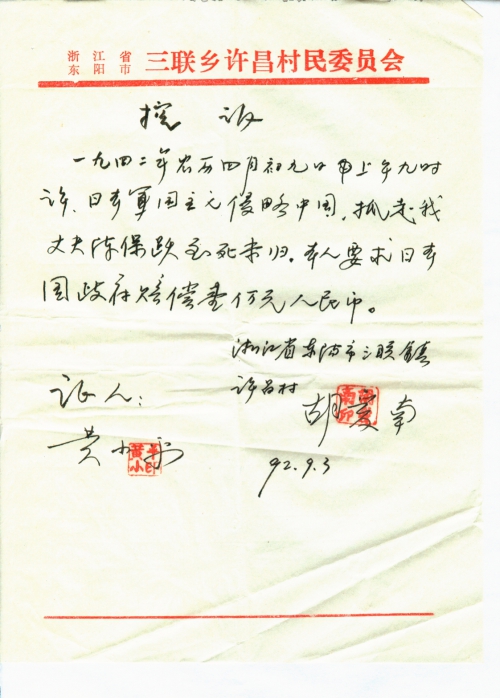 浙江省
东阳市 三联乡许昌村民委员会
控诉
一九四二年农历四月初九日上午九时
许,日本军国主义侵略中国,抓走我
丈夫陈保跃至死未归。本人要求日本
国政府赔偿壹万元人民币。
浙江省东阳市三联镇
许昌村
证人:
胡爱南
黄小
92.9.3